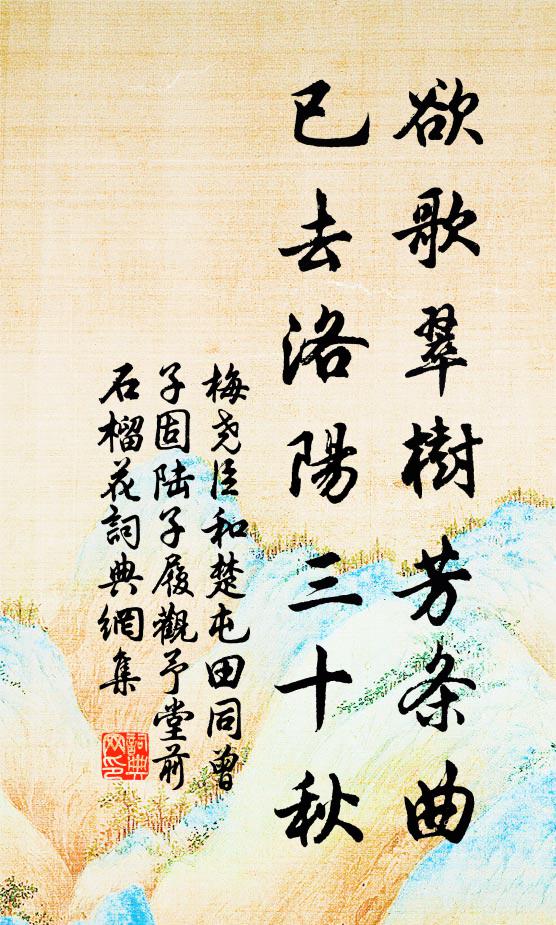 欲歌翠樹芳条曲
已去洛陽三十秋
梅尧臣和楚屯田同曾
子固陆子履觀予堂前
石榴花詞典網集
詞典网印